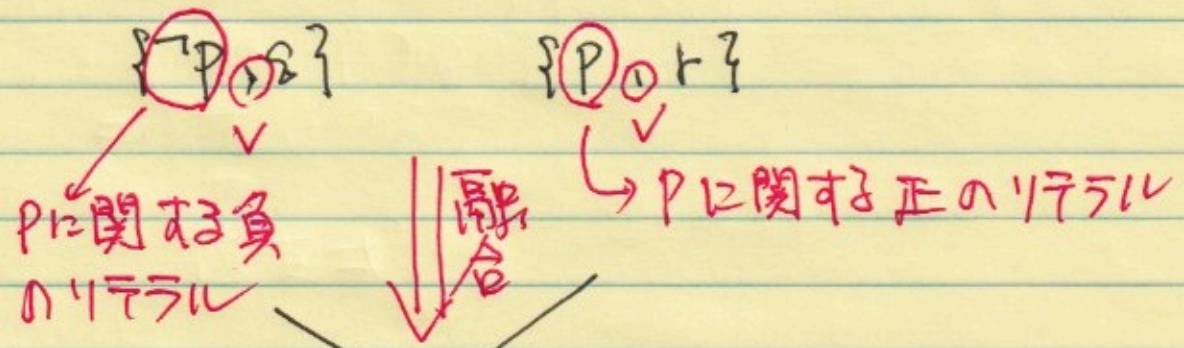 {¬P, q} {P, r}
∨ ∨
Pに関する負
のリテラル
融合
Pに関する正のリテラル